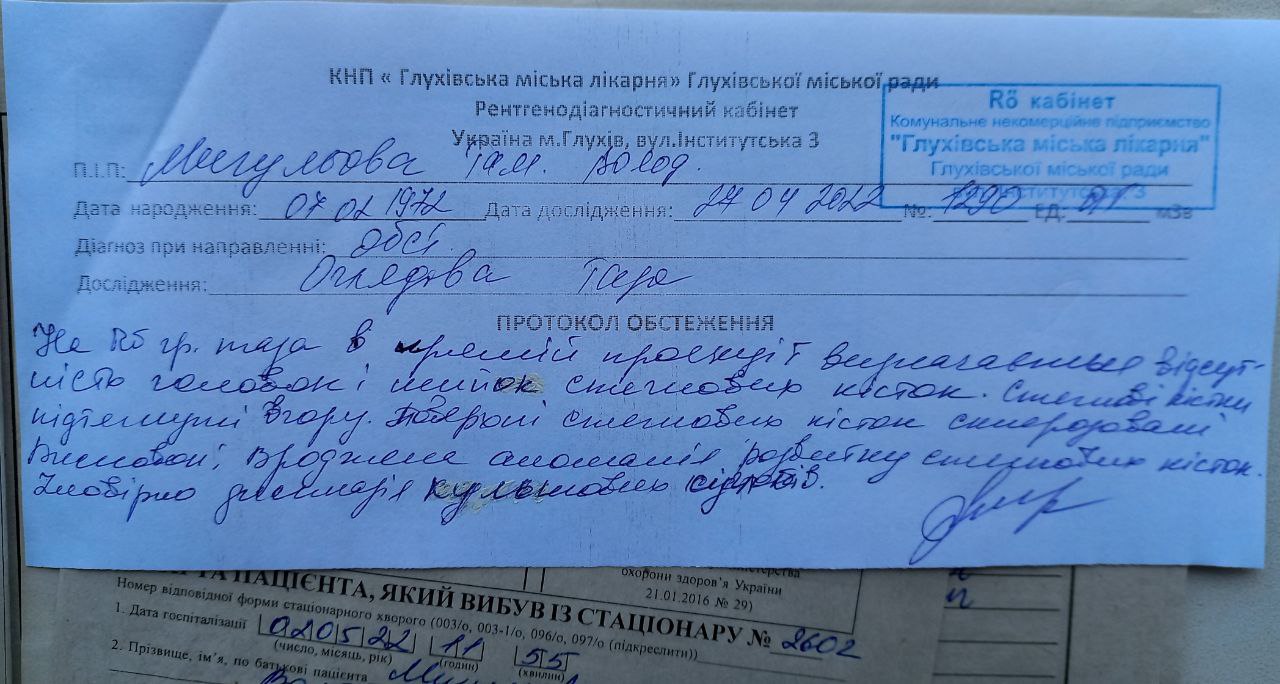 КНП « Глухівська міська лікарня» Глухівської міської ради
Рентгенодіагностичний кабінет
Україна м.Глухів, вул.Інститутська 3
Rő кабінет
Комунальне некомерційне підприємство
"Глухівська міська лікарня"
Глухівської міської ради
П.І.П: Мигульова Там. Волод.
Дата народження: 07 02 1972 Дата дослідження: 27 04 2022 №: 1290 ЕД: мЗв
Діагноз при направленні: обст.
Дослідження: Оглядова таза
ПРОТОКОЛ ОБСТЕЖЕННЯ
На Rő гр. таза в прямій проекції визначається відсут-
ність головок і шийок стегнових кісток. Стегнові кістки
підтягнуті вгору. стегнових кісток склерозовані
Висновок: Вроджена аномалія розвитку стегнових кісток.
Імовірно дисплазія кульшових суглобів.
ТА ПАЦІЄНТА, ЯКИЙ ВИБУВ ІЗ СТАЦІОНАРУ № 2602
охорони здоров'я України
21.01.2016 № 29)
Номер відповідної форми стаціонарного хворого (003/о, 003-1/о, 096/о, 097/о (підкреслити))
1. Дата госпіталізації 020522 11 55
(число, місяць, рік) (годин) (хвилин)
2. Прізвище, ім'я, по батькові пацієнта